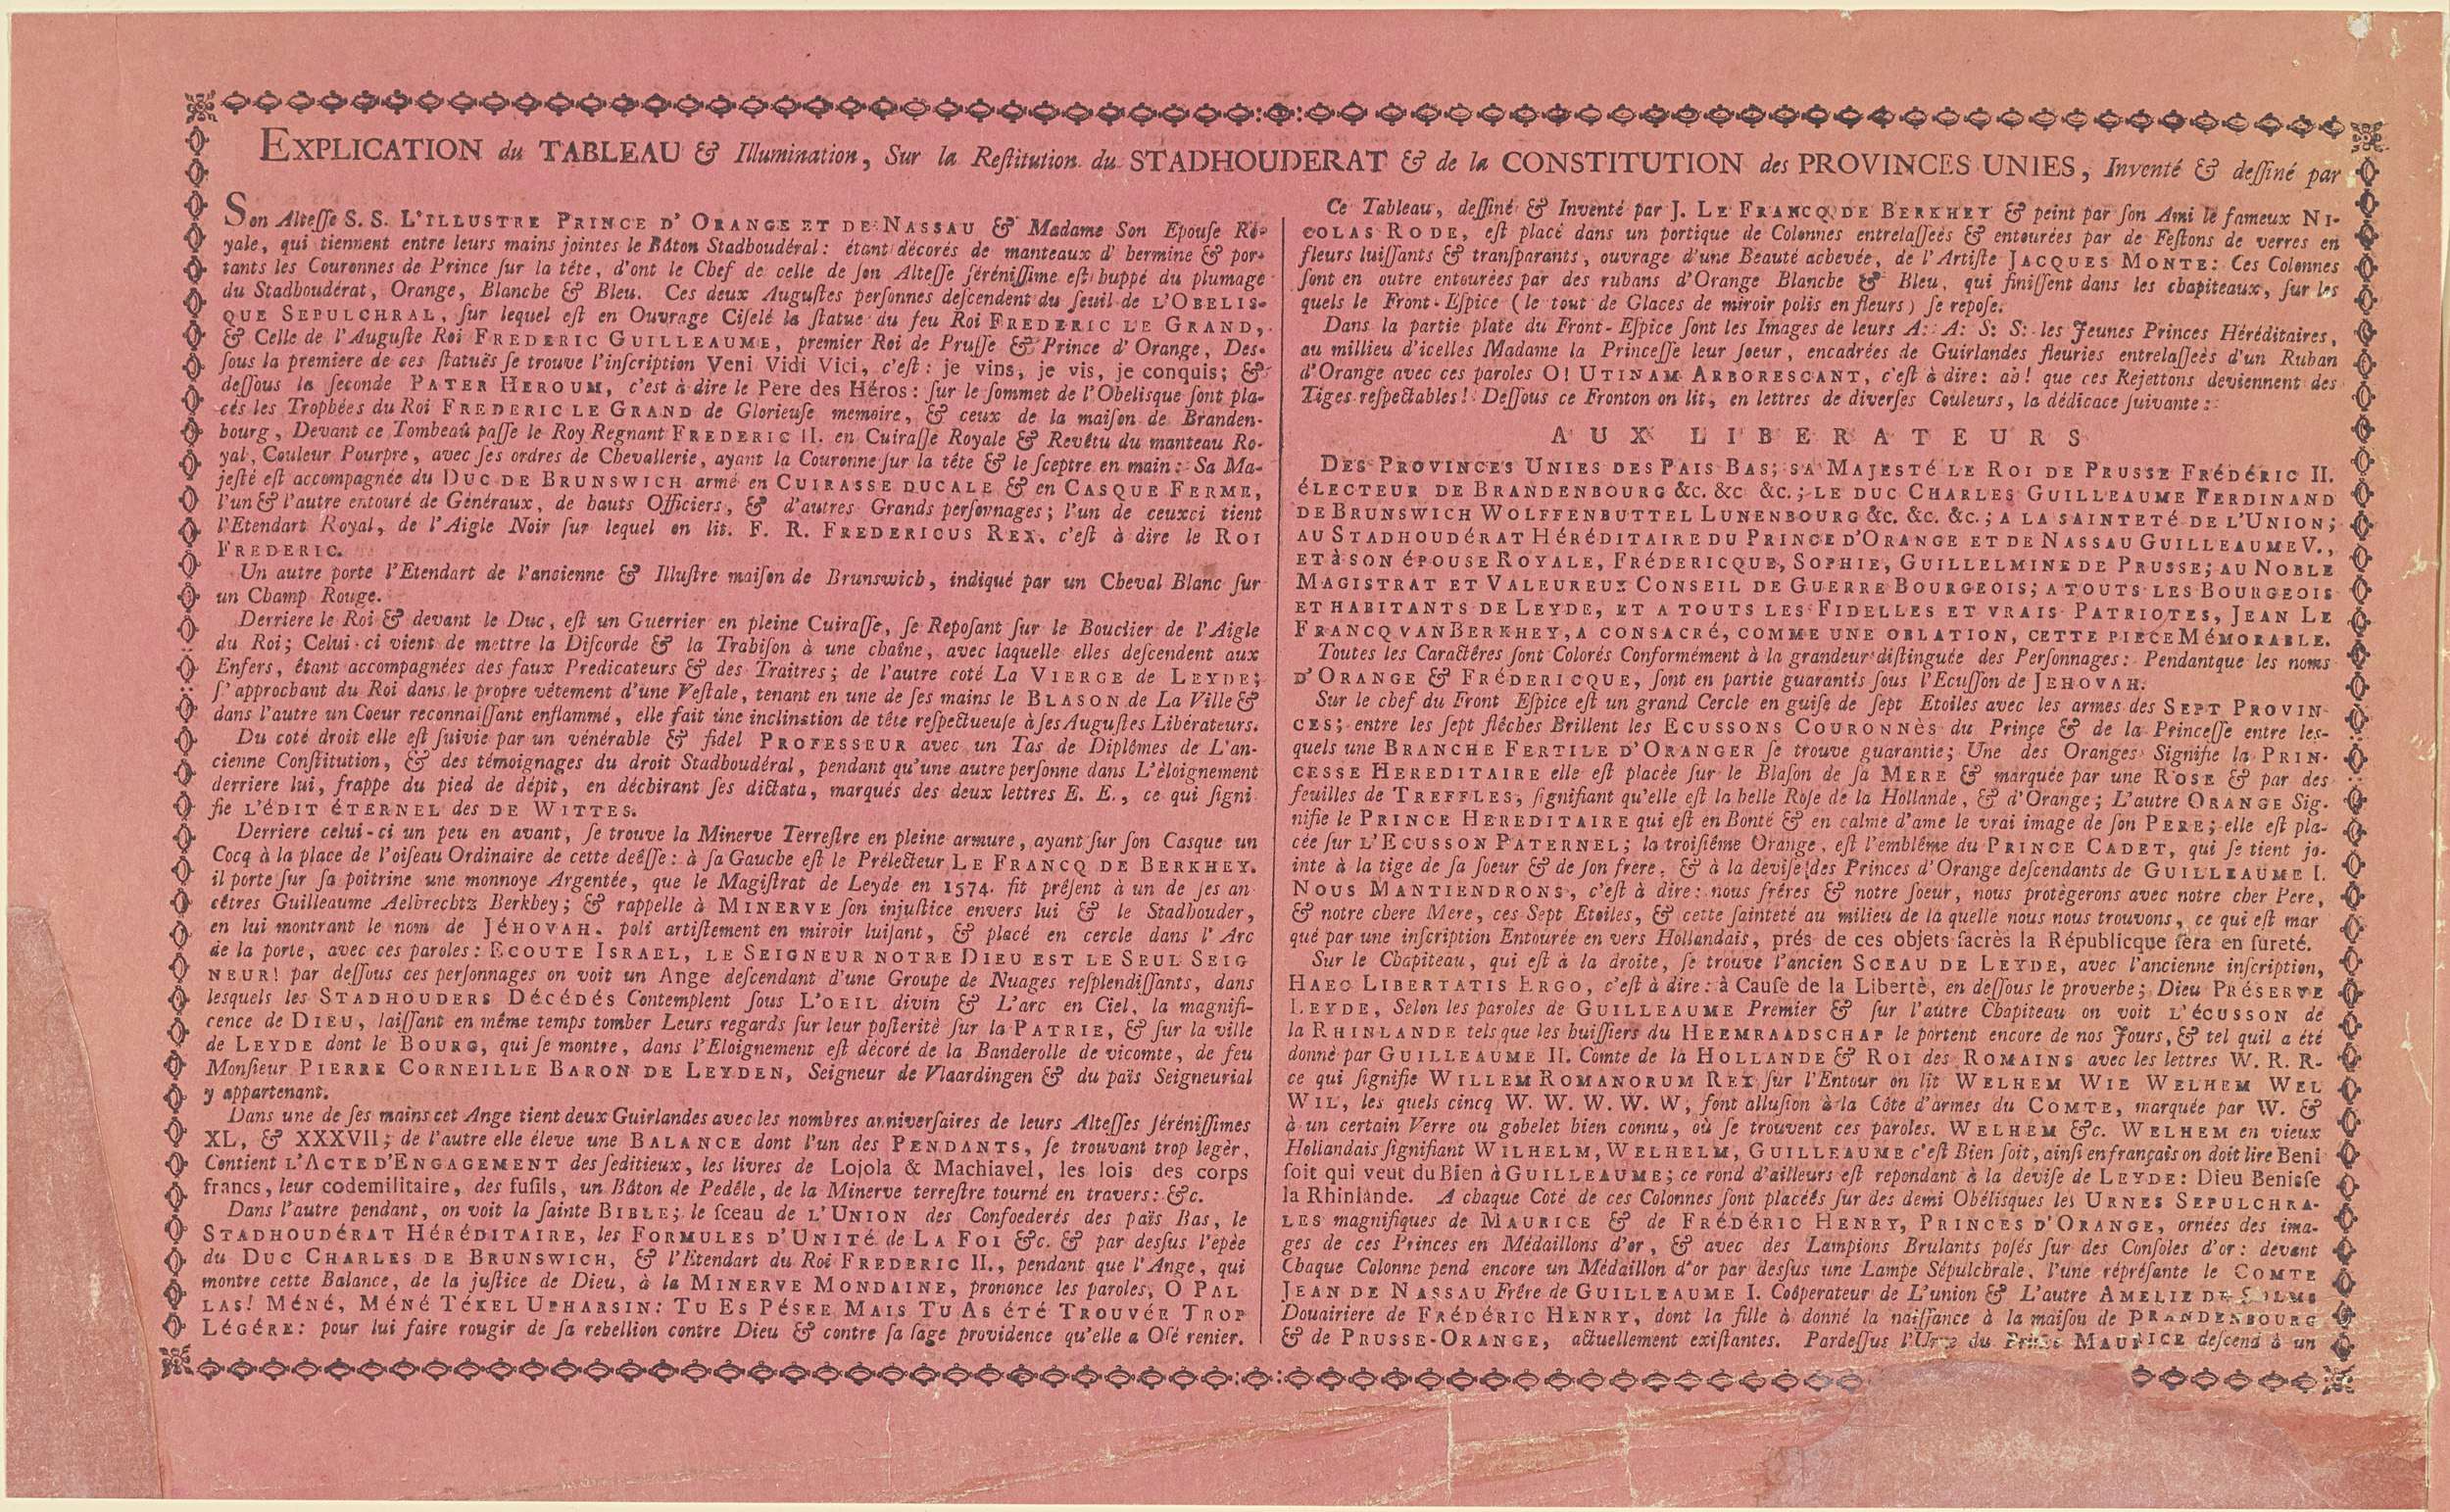 EXPLICATION du TABLEAU & Illumination, Sur la Reſtitution du STADHOUDERAT & de la CONSTITUTION des PROVINCES UNIES, Inventé & deſſiné par
Son Alteſſe S. S. L'ILLUSTRE PRINCE D' ORANGE ET DE NASSAU & Madame Son Epouſe Ro-
yale, qui tiennent entre leurs mains jointes le Bâton Stadhoudéral: étant décorés de manteaux d' hermine & por-
tants les Couronnes de Prince ſur la tête, d'ont le Chef de celle de ſon Alteſſe ſéréniſſime eſt huppé du plumage
du Stadhoudérat, Orange, Blanche & Bleu. Ces deux Auguſtes perſonnes deſcendent du ſeuil de L'OBELIS-
QUE SEPULCHRAL, ſur lequel eſt en Ouvrage Ciſelé la ſtatue du feu Roi FREDERIC LE GRAND,
& Celle de l'Auguſte Roi FREDERIC GUILLEAUME, premier Roi de Pruſſe & Prince d'Orange, Des-
ſous la premiere de ces ſtatuës ſe trouve l'inſcription Veni Vidi Vici, c'eſt: je vins, je vis, je conquis; &
deſſous la ſeconde PATER HEROUM, c'est à dire le Pere des Héros: ſur le ſommet de l'Obelisque ſont pla-
cés les Trophées du Roi FREDERIC LE GRAND de Glorieuſe memoire, & ceux de la maiſon de Branden-
bourg, Devant ce Tombeau paſſe le Roy Regnant FREDERIC II. en Cuiraſſe Royale & Revêtu du manteau Ro-
yal, Couleur Pourpre, avec ſes ordres de Chevallerie, ayant la Couronne ſur la tête & le ſceptre en main: Sa Ma-
jeſté eſt accompagnée du DUC DE BRUNSWICH armé en CUIRASSE DUCALE & en CASQUE FERME,
l'un & l'autre entouré de Généraux, de hauts Officiers, & d'autres Grands perſonnages; l'un de ceuxci tient
l'Etendart Royal, de l'Aigle Noir ſur lequel on lit. F. R. FREDERICUS REX. c'eſt à dire le ROI
FREDERIC.
Un autre porte l'Etendart de l'ancienne & Illuſtre maiſon de Brunswich, indiqué par un Cheval Blanc ſur
un Champ Rouge.
Derriere le Roi & devant le Duc, eſt un Guerrier en pleine Cuiraſſe, ſe Repoſant ſur le Bouclier de l'Aigle
du Roi; Celui-ci vient de mettre la Diſcorde & la Trahiſon à une chaîne, avec laquelle elles deſcendent aux
Enfers, étant accompagnées des faux Predicateurs & des Traitres; de l'autre coté La VIERGE de LEYDE;
ſ'approchant du Roi dans le propre vêtement d'une Veſtale, tenant en une de ſes mains le BLASON de La Ville &
dans l'autre un Coeur reconnaiſſant enflammé, elle fait úne inclination de tête reſpectueuſe à ſes Auguſtes Libérateurs.
Du coté droit elle eſt ſuivie par un vénérable & fidel PROFESSEUR avec un Tas de Diplômes de L'an-
cienne Conſtitution, & des témoignages du droit Stadhoudéral, pendant qu'une autre perſonne dans L'éloignement
derriere lui, frappe du pied de dépit, en déchirant ſes dictata, marqués des deux lettres E. E., ce qui ſigni
fie L'ÉDIT ÉTERNEL des DE WITTES.
Derriere celui-ci un peu en avant, ſe trouve la Minerve Terreſtre en pleine armure, ayant ſur ſon Casque un
Cocq à la place de l'oiſeau Ordinaire de cette deêſſe: à ſa Gauche eſt le Prélecteur LE FRANCQ DE BERKHEY.
il porte ſur ſa poitrine une monnoye Argentée, que le Magiſtrat de Leyde en 1574. fit préſent à un de ſes an
cêtres Guilleaume Aelbrechtz Berkhey; & rappelle à MINERVE ſon injuſtice envers lui & le Stadhouder,
en lui montrant le nom de JÉHOVAH. poli artiſtement en miroir luiſant, & placé en cercle dans l'Arc
de la porte, avec ces paroles: ECOUTE ISRAEL, LE SEIGNEUR NOTRE DIEU EST LE SEUL SEIG
NEUR! par deſſous ces perſonnages on voit un Ange deſcendant d'une Groupe de Nuages reſplendiſſants, dans
lesquels les STADHOUDERS DÉCÉDÉS Contemplent ſous L'OEIL divin & L'arc en Ciel, la magnifi-
cence de DIEU, laiſſant en même temps tomber Leurs regards ſur leur poſterité ſur la PATRIE, & ſur la ville
de LEYDE dont le BOURG, qui ſe montre, dans l'Eloignement eſt décoré de la Banderolle de vicomte, de feu
Monſieur PIERRE CORNEILLE BARON DE LEYDEN, Seigneur de Vlaardingen & du païs Seigneurial
y appartenant.
Dans une de ſes mains cet Ange tient deux Guirlandes avec les nombres anniverſaires de leurs Alteſſes ſéréniſſimes
XL, & XXXVII; de l'autre elle éleve une BALANCE dont l'un des PENDANTS, ſe trouvant trop legèr,
Contient L'ACTE D'ENGAGEMENT des ſeditieux, les livres de Lojola & Machiavel, les lois des corps
francs, leur codemilitaire, des fuſils, un Bâton de Pedêle, de la Minerve terreſtre tourné en travers: &c.
Dans l'autre pendant, on voit la ſainte BIBLE; le ſceau de L'UNION des Confoederés des païs Bas, le
STADHOUDÉRAT HÉRÉDITAIRE, les FORMULES D'UNITÉ de LA FOI &c. & par desſus l'epée
du DUC CHARLES DE BRUNSWICH, & l'Etendart du Roi FREDERIC II., pendant que l'Ange, qui
montre cette Balance, de la juſtice de Dieu, à la MINERVE MONDAINE, prononce les paroles, O PAL
LAS! MÉNÉ, MÉNÉ TÉKEL UPHARSIN: TU ES PÉSEE MAIS TU AS ÉTÉ TROUVÉE TROP
LÉGÉRE: pour lui faire rougir de ſa rebellion contre Dieu & contre ſa ſage providence qu'elle a Oſé renier.
Ce Tableau, deſſiné & Inventé par J. LE FRANCQ DE BERKHEY & peint par ſon Ami le fameux NI-
COLAS RODE, eſt placé dans un portique de Colonnes entrelaſſeès & entourées par de Feſtons de verres en
fleurs luiſſants & tranſparants, ouvrage d'une Beauté achevée, de l'Artiſte JACQUES MONTE: Ces Colonnes
ſont en outre entourées par des rubans d'Orange Blanche & Bleu, qui finiſſent dans les chapiteaux, ſur les
quels le Front-Eſpice (le tout de Glaces de miroir polis en fleurs) ſe repoſe.
Dans la partie plate du Front-Eſpice ſont les Images de leurs A: A: S: S: les Jeunes Princes Héréditaires,
au millieu d'icelles Madame la Princeſſe leur ſoeur, encadrées de Guirlandes fleuries entrelaſſeès d'un Ruban
d'Orange avec ces paroles O! UTINAM ARBORESCANT, c'eſt à dire: ah! que ces Rejettons deviennent des
Tiges reſpectables! Deſſous ce Fronton on lit, en lettres de diverſes Couleurs, la dédicace ſuivante:
AUX LIBERATEURS
DES PROVINCES UNIES DES PAIS BAS; SA MAJESTÉ LE ROI DE PRUSSE FRÉDÉRIC II.
ÉLECTEUR DE BRANDENBOURG &c. &c &c.; LE DUC CHARLES GUILLEAUME FERDINAND
DE BRUNSWICH WOLFFENBUTTEL LUNENBOURG &c. &c. &c.; A LA SAINTETÉ DE L'UNION;
AU STADHOUDÉRAT HÉRÉDITAIRE DU PRINCE D'ORANGE ET DE NASSAU GUILLEAUME V.,
ET À SON ÉPOUSE ROYALE, FRÉDERICQUE, SOPHIE, GUILLELMINE DE PRUSSE; AU NOBLE
MAGISTRAT ET VALEUREUX CONSEIL DE GUERRE BOURGEOIS; A TOUTS LES BOURGEOIS
ET HABITANTS DE LEYDE, ET A TOUTS LES FIDELLES ET VRAIS PATRIOTES, JEAN LE
FRANCQ VAN BERKHEY, A CONSACRÉ, COMME UNE OBLATION, CETTE PIECE MÉMORABLE.
Toutes les Caractéres ſont Colorés Conformément à la grandeur diſtinguée des Perſonnages: Pendantque les noms
D'ORANGE & FRÉDERICQUE, ſont en partie guarantis ſous l'Ecuſſon de JEHOVAH.
Sur le chef du Front Eſpice eſt un grand Cercle en guiſe de ſept Etoiles avec les armes des SEPT PROVIN
CES; entre les ſept flêches Brillent les ECUSSONS COURONNÈS du Prinçe & de la Princeſſe entre les-
quels une BRANCHE FERTILE D'ORANGER ſe trouve guarantie; Une des Oranges Signifie la PRIN-
CESSE HEREDITAIRE elle eſt placée ſur le Blaſon de ſa MERE & marquée par une ROSE & par des
feuilles de TREFFLES, ſignifiant qu'elle eſt la belle Roſe de la Hollande, & d'Orange; L'autre ORANGE Sig-
nifie le PRINCE HEREDITAIRE qui eſt en Bonté & en calme d'ame le vrai image de ſon PERE; elle eſt pla-
cée ſur L'ECUSSON PATERNEL; la troiſiême Orange, eſt l'emblême du PRINCE CADET, qui ſe tient jo-
inte à la tige de ſa ſoeur & de ſon frere, & à la deviſe des Princes d'Orange deſcendants de GUILLEAUME I.
NOUS MANTIENDRONS, c'eſt à dire: nous fréres & notre ſoeur, nous protègerons avec notre cher Pere,
& notre chere Mere, ces Sept Etoiles, & cette ſainteté au milieu de la quelle nous nous trouvons, ce qui eſt mar
qué par une inſcription Entourée en vers Hollandais, prés de ces objets ſacrès la Républicque ſera en ſureté.
Sur le Chapiteau, qui eſt à la droite, ſe trouve l'ancien SCEAU DE LEYDE, avec l'ancienne inſcription,
HAEC LIBERTATIS ERGO, c'eſt à dire: à Cauſe de la Libertè, en deſſous le proverbe; Dieu PRÉSERVE
LEYDE, Selon les paroles de GUILLEAUME Premier & ſur l'autre Chapiteau on voit L'ÉCUSSON de
la RHINLANDE tels que les huiſſiers du HEEMRAADSCHAP le portent encore de nos Jours, & tel quil a été
donné par GUILLEAUME II. Comte de la HOLLANDE & ROI des ROMAINS avec les lettres W. R. R.
ce qui ſignifie WILLEM ROMANORUM REX ſur l'Entour on lit WELHEM WIE WELHEM WEL
WIL, les quels cinq W. W. W. W. W, ſont alluſion à la Côte d'armes du COMTE, marquée par W. &
à un certain Verre ou gobelet bien connu, où ſe trouvent ces paroles. WELHEM &c. WELHEM en vieux
Hollandais ſignifiant WILHELM, WELHELM, GUILLEAUME c'eſt Bien ſoit, ainſi en français on doit lire Beni
ſoit qui veut du Bien à GUILLEAUME; ce rond d'ailleurs eſt repondant à la deviſe de LEYDE: Dieu Benisſe
la Rhinlande. A chaque Coté de ces Colonnes ſont placéés ſur des demi Obélisques les URNES SEPULCHRA-
LES magnifiques de MAURICE & de FRÉDÉRIC HENRY, PRINCES D'ORANGE, ornées des ima-
ges de ces Princes en Médaillons d'or, & avec des Lampions Brulants poſés ſur des Conſoles d'or: devant
Chaque Colonne pend encore un Médaillon d'or par desſus une Lampe Sépulchrale, l'une répréſante le COMTE
JEAN DE NASSAU Frére de GUILLEAUME I. Coôperateur de L'union & L'autre AMELIE DE SOLMS
Douairiere de FRÉDÉRIC HENRY, dont la fille à donné la naiſſance à la maiſon de BRANDENBOURG
& de PRUSSE-ORANGE, actuellement exiſtantes. Pardeſſus l'Urne du Prince MAURICE deſcend à un